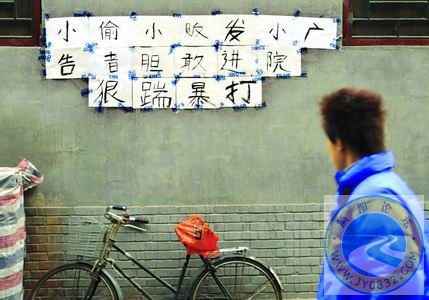 小偷小贩发小广
告者胆敢进院
狠踹暴打
简阳论坛
WWW.JY0832.COM